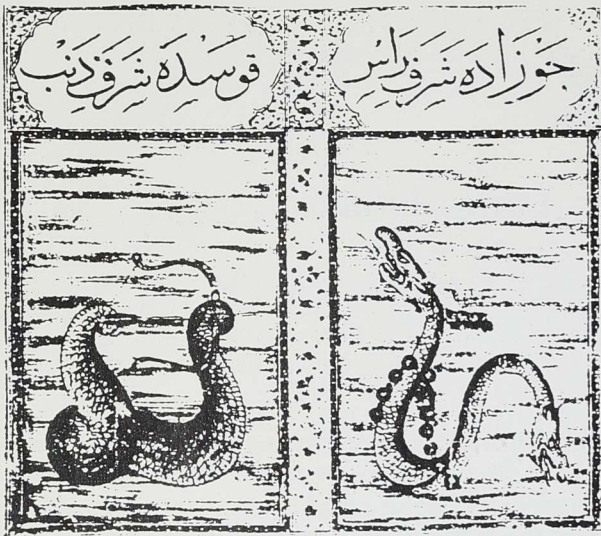 جَوْزَادَه شَرَفِ رَاسِ
قوسدَه شَرَفِ ذَنَبْ